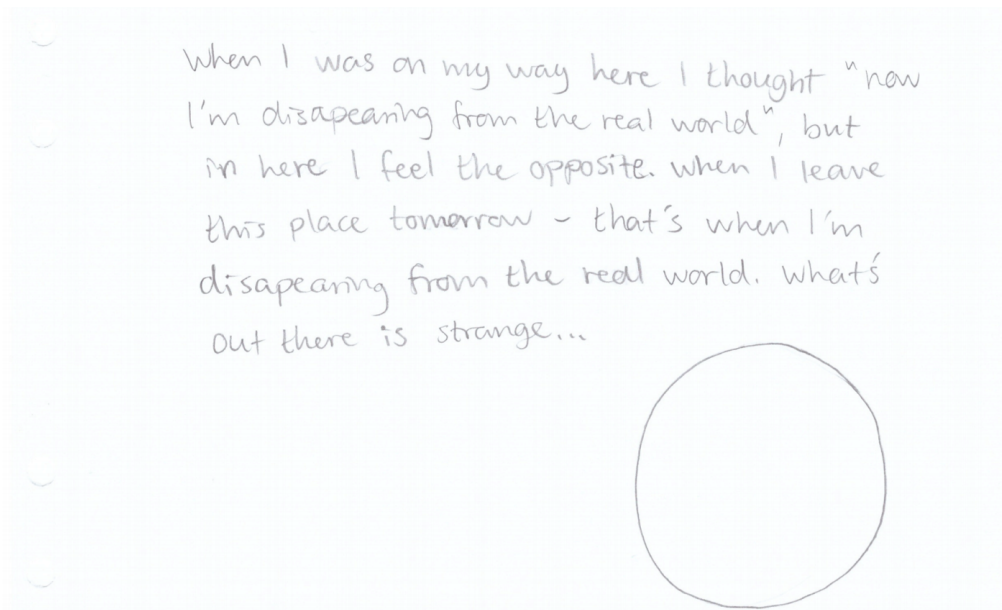 When I was on my way here I thought "now
I'm disapearing from the real world", but
in here I feel the opposite. when I leave
this place tomorrow - that's when I'm
disapearing from the real world. What's
out there is strange...